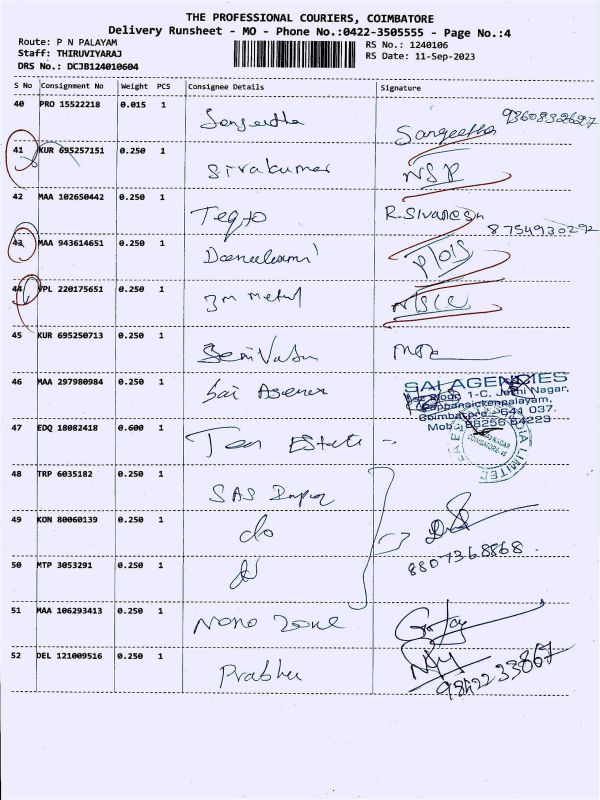 THE PROFESSIONAL COURIERS, COIMBATORE
Delivery Runsheet - MO - Phone No.:0422-3505555 - Page No.:4
Route: P N PALAYAM
Staff: THIRUVIYARAJ
DRS No.: DCJB124010604
RS No.: 1240106
RS Date: 11-Sep-2023
S No Consignment No Weight PCS Consignee Details Signature
40 PRO 15522218 0.015 1 Sangeetha Sangeetha 9360832627
41 KUR 695257151 0.250 1 Sivakumar NSP
42 MAA 102650442 0.250 1 R.Sivanesh
8754930292
43 MAA 943614651 0.250 1
44 VPL 220175651 0.250 1 3m
45 KUR 695250713 0.250 1
46 MAA 297980984 0.250 1 Sai
SAI AGENCIES
1-C, Jothi Nagar,
Pappanaickenpalayam,
Coimbatore - 641 037.
Mob: 98256 64223
47 EDQ 18082418 0.600 1 Estate
48 TRP 6035182 0.250 1 SAS
49 KON 80060139 0.250 1 do
8807368868
50 MTP 3053291 0.250 1 do
51 MAA 106293413 0.250 1 Nano Zone
52 DEL 121009516 0.250 1 Prabhu
9842233867